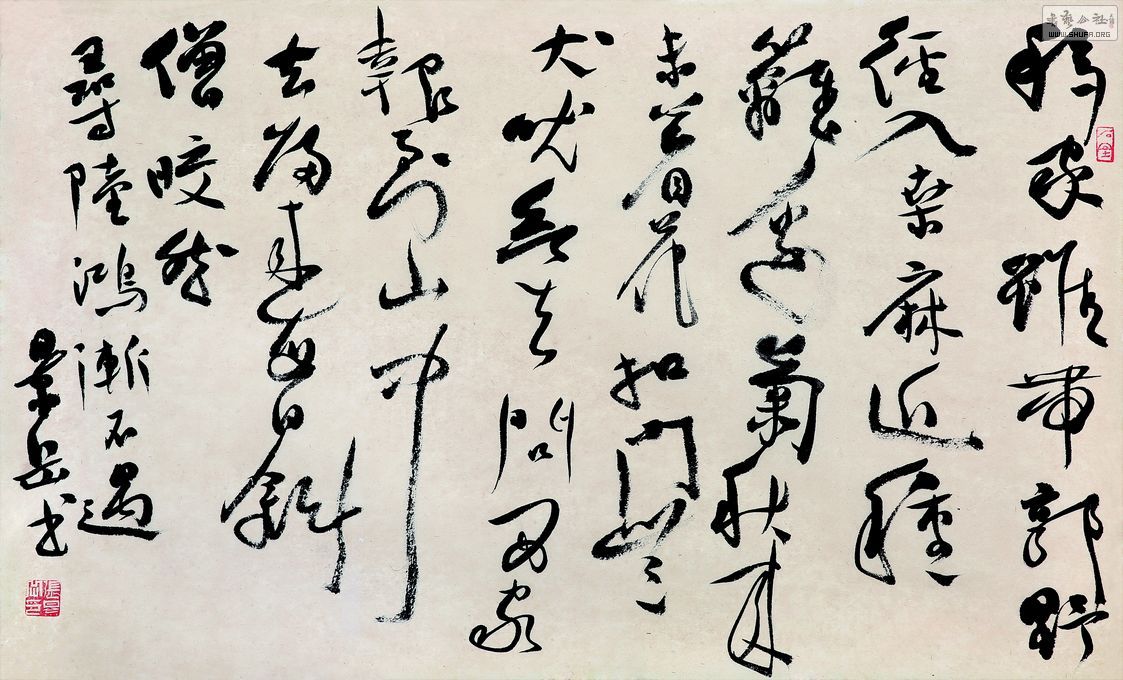 移家雖帶郭野
徑入桑麻近種
籬邊菊秋來
未著花扣門無
犬吠欲去問西家
報到山中
去歸來每日斜
僧皎然
尋陸鴻漸不遇
景岳书
張景岳印
書藝公社
WWW.SHUFA.ORG